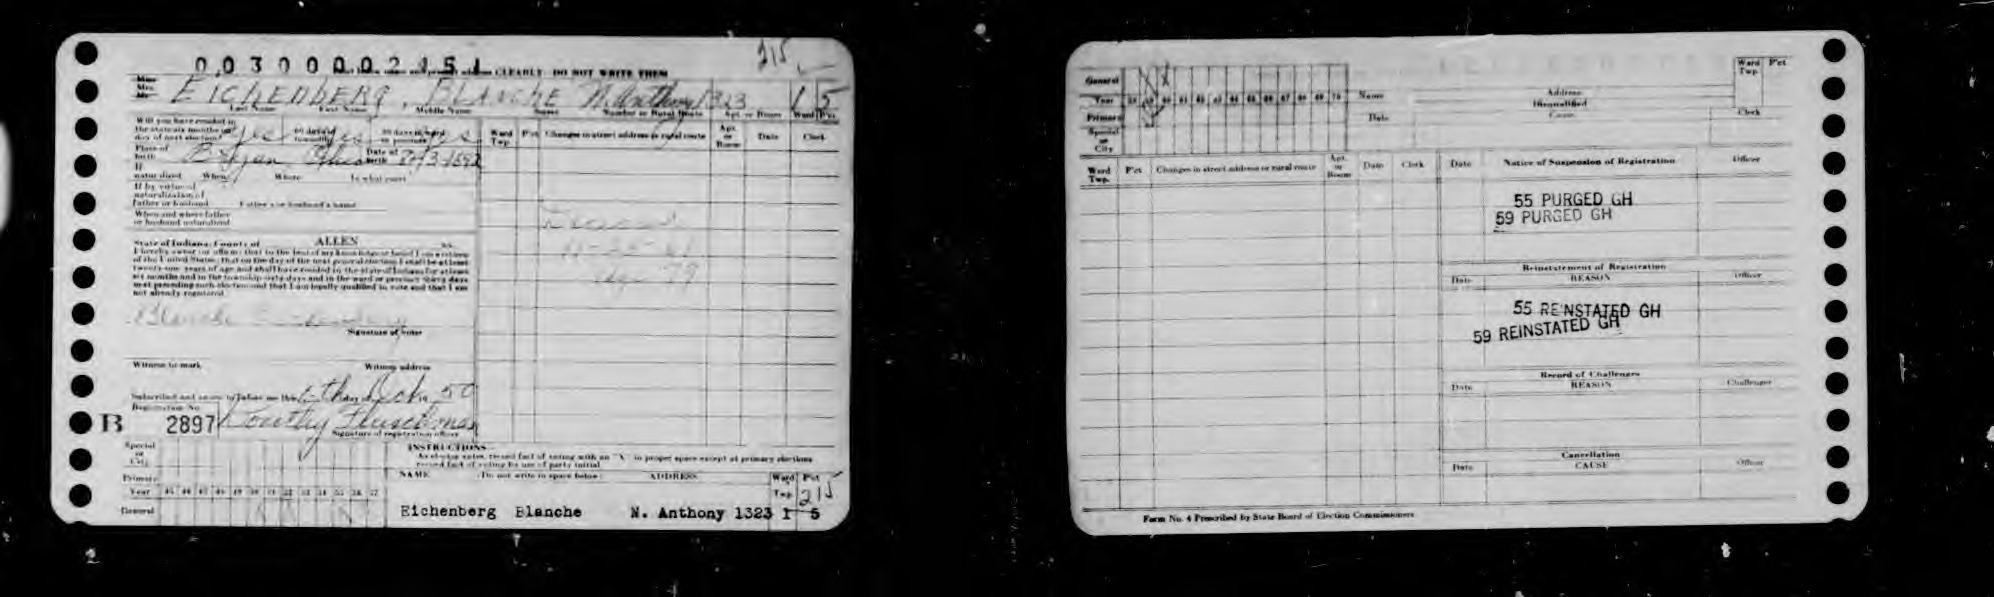 0030000 2151
CLEARLY DO NOT WRITE THEM
215
Miss
Mrs.
Mr.
EICHENBERG, BLANCHE N. Anthony 1323 1 5
Last Name First Name Middle Name Street Number or Rural Route Apt. or Room Ward Pct.
Will you have resided in
the state six months on
day of next election? Yes 60 days in township Yes 30 days in ward or precinct Yes
Place of
birth Bryan Ohio Date of birth
If
naturalized When Where In what court
If by virtue of
naturalization of
father or husband Father's or husband's name
When and where father
or husband naturalized
State of Indiana, County of ALLEN ss.
I hereby swear (or affirm) that to the best of my knowledge or belief I am a citizen
of the United States; that on the day of the next general election I shall be at least
twenty-one years of age and shall have resided in the state of Indiana for at least
six months and in the township sixty days and in the ward or precinct thirty days
next preceding such election and that I am legally qualified to vote and that I am
not already registered.
Blanche Eichenberg
Signature of voter
Witness to mark Witness address
Subscribed and sworn to before me this day of Oct. 50
Registration No.
B 2897
Signature of registration officer
Ward
Twp. P'ct Changes in street address or rural route Apt.
or
Room Date Clerk
Deceased
11-5-61
Age 79
Special
or
City
Primary
Year 45 46 47 48 49 50 51 52 53 54 55 56 57
General
INSTRUCTIONS
As elector votes, record fact of voting with an "X" in proper space except at primary elections
record fact of voting by use of party initial.
NAME (Do not write in space below) ADDRESS Ward
Twp. P'ct
215
Eichenberg Blanche N. Anthony 1323 1 5
2
General
Year 58 59 60 61 62 63 64 65 66 67 68 69 70
Primary
Special
or
City
Name Address
Date Disqualified
Cause Clerk
Ward
Twp. P'ct
Ward
Twp. P'ct Changes in street address or rural route Apt.
or
Room Date Clerk
Date Notice of Suspension of Registration Officer
55 PURGED GH
59 PURGED GH
Reinstatement of Registration
Date REASON Officer
55 REINSTATED GH
59 REINSTATED GH
Record of Challenges
Date REASON Challenger
Cancellation
Date CAUSE Officer
Form No. 4 Prescribed by State Board of Election Commissioners